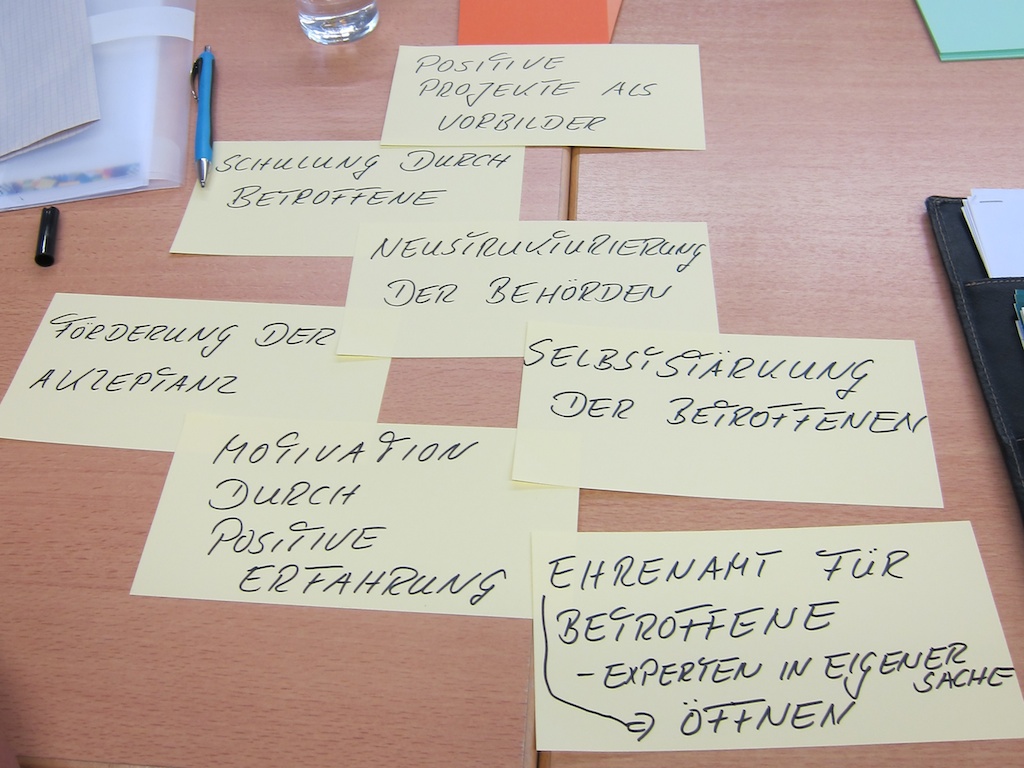 POSITIVE
PROJEKTE ALS
VORBILDER
SCHULUNG DURCH
BETROFFENE
NEUSTRUKTURIERUNG
DER BEHÖRDEN
FÖRDERUNG DER
AKZEPTANZ
SELBSTSTÄRKUNG
DER BETROFFENEN
MOTIVATION
DURCH
POSITIVE
ERFAHRUNG
EHRENAMT FÜR
BETROFFENE
- EXPERTEN IN EIGENER
SACHE
⇒ ÖFFNEN